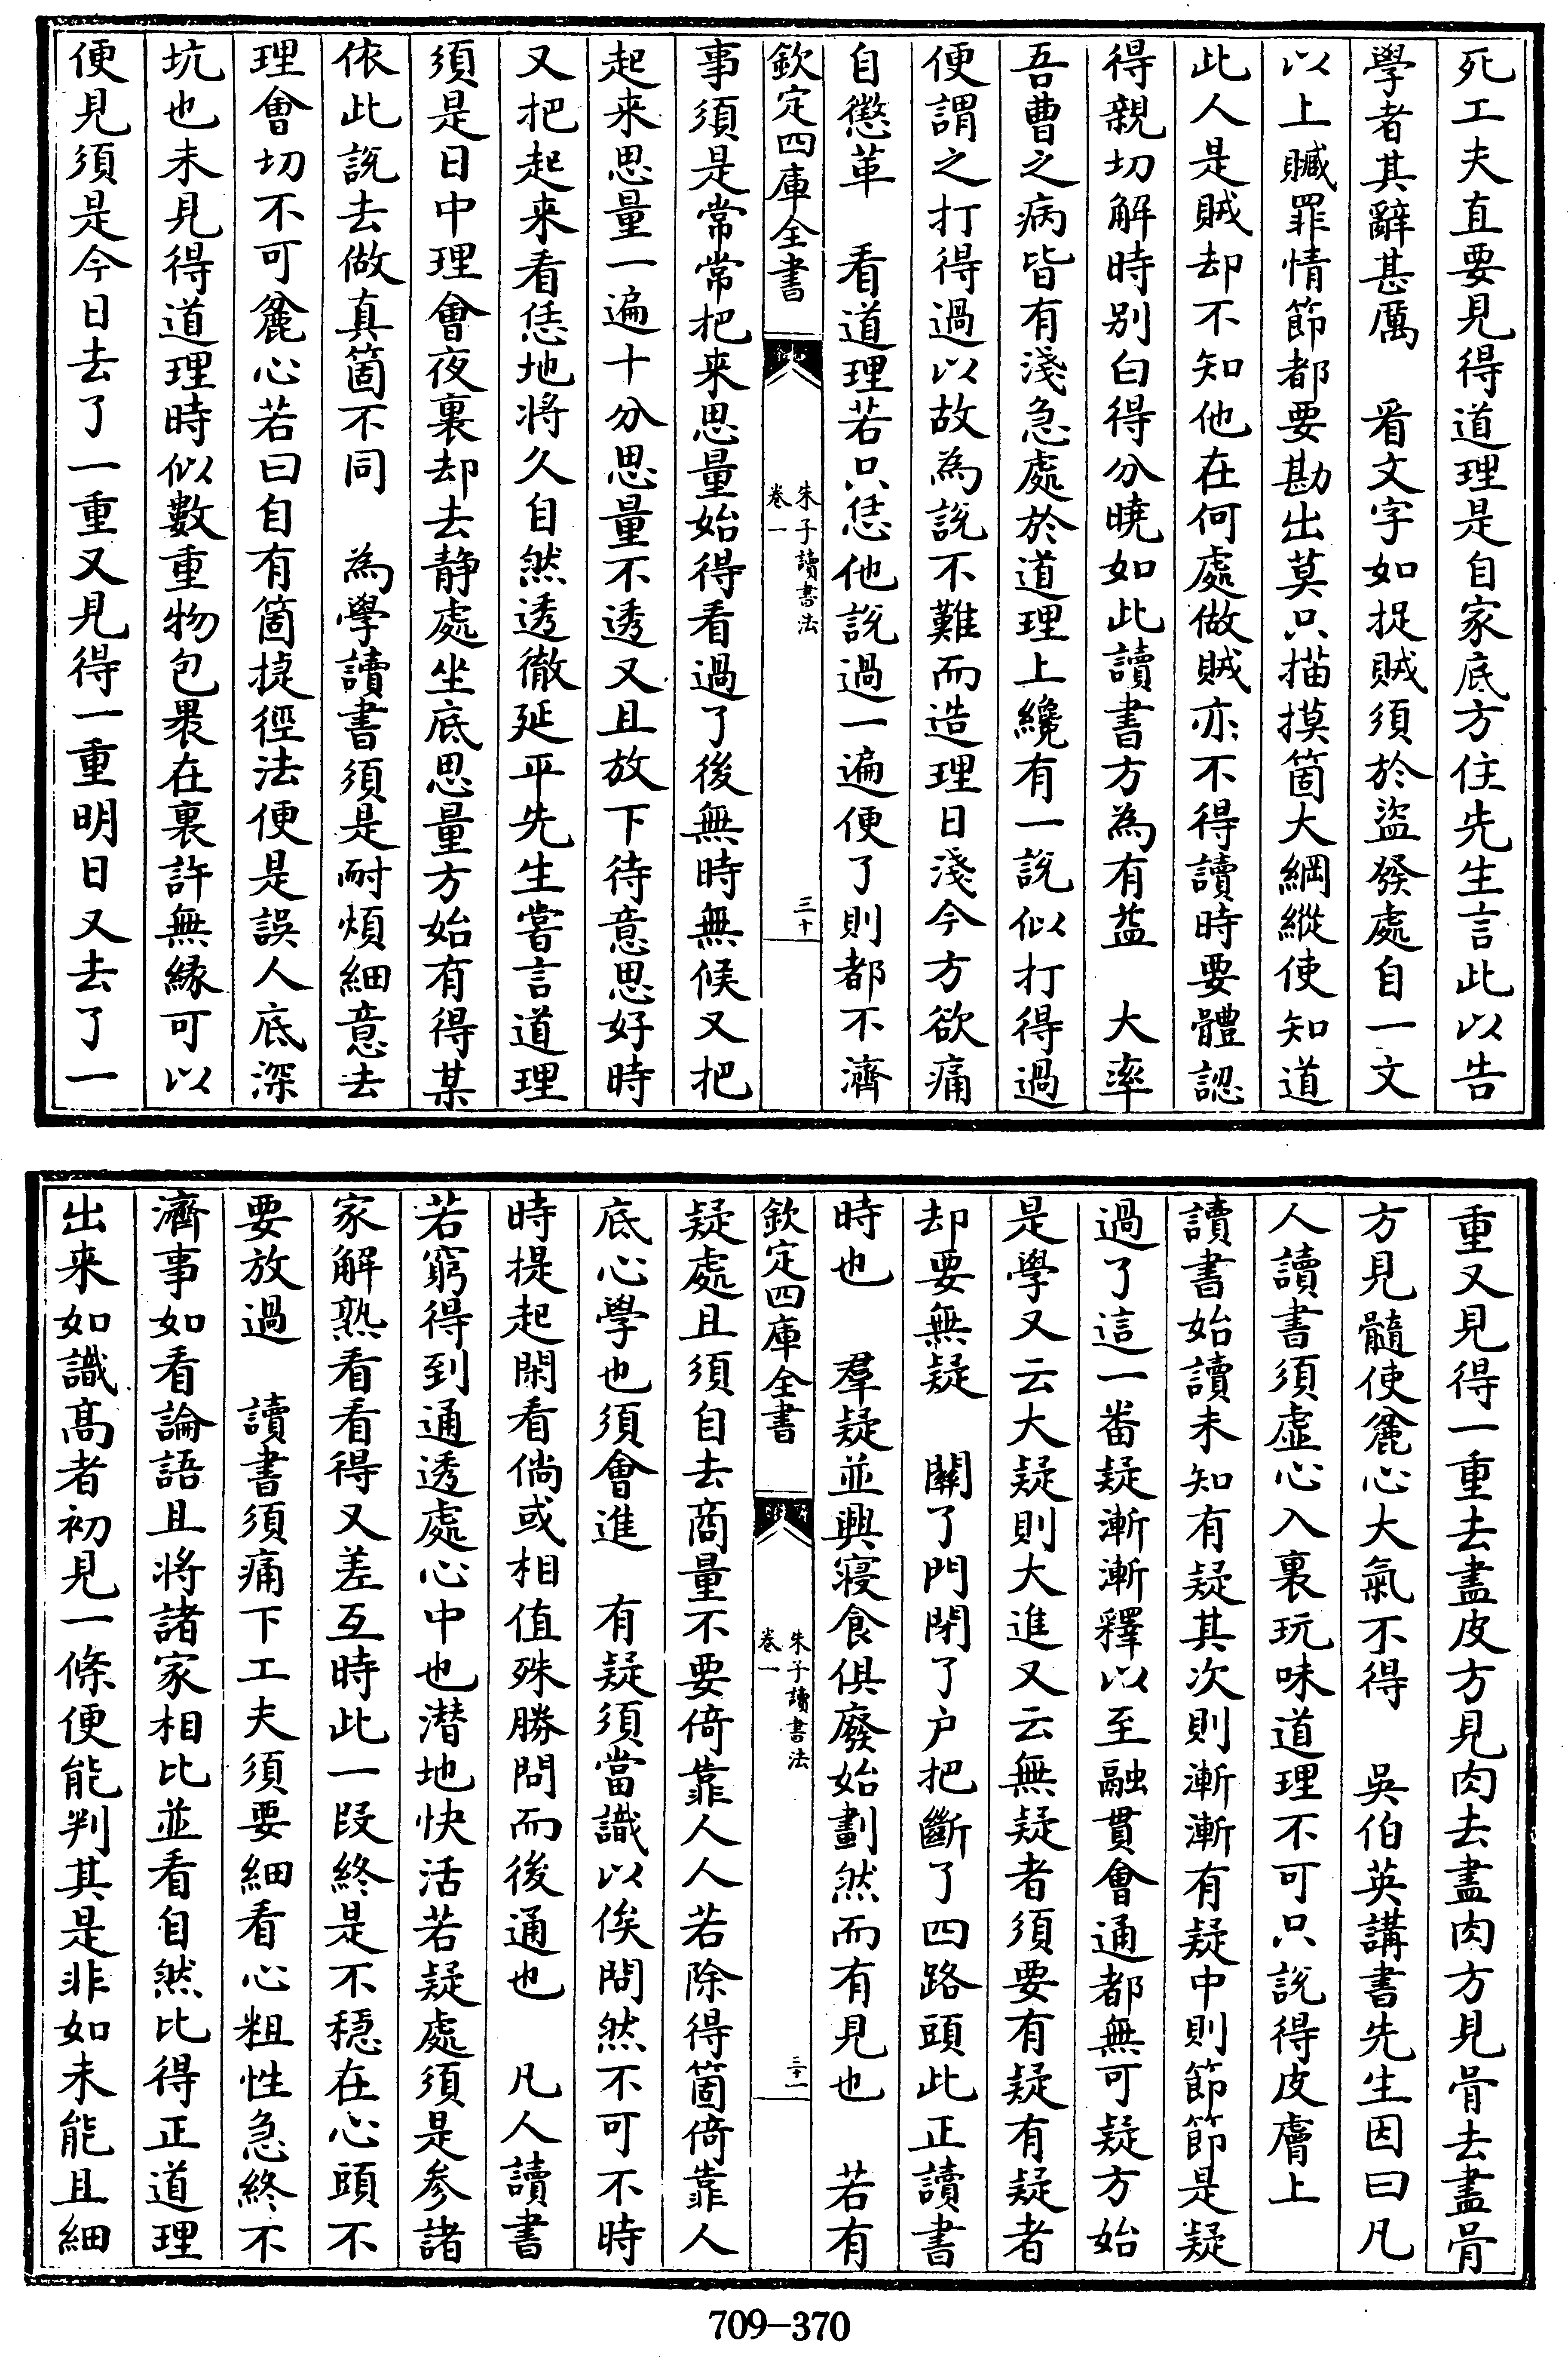 死工夫直要見得道理是自家底方住先生言此以告
學者其辭甚厲　看文字如捉賊須於盜發處自一文
以上贓罪情節都要勘出莫只描摸箇大綱縱使知道
此人是賊却不知他在何處做賊亦不得讀時要體認
得親切解時别白得分曉如此讀書方為有益　大率
吾曹之病皆有淺急處於道理上纔有一說似打得過
便謂之打得過以故為說不難而造理日淺今方欲痛
自懲革　看道理若只恁他說過一遍便了則都不濟
欽定四庫全書
朱子讀書法
卷一
三十
事須是常常把来思量始得看過了後無時無候又把
起来思量一遍十分思量不透又且放下待意思好時
又把起来看恁地將久自然透徹延平先生嘗言道理
須是日中理會夜裏却去静處坐底思量方始有得某
依此說去做真箇不同　為學讀書須是耐煩細意去
理會切不可麄心若曰自有箇捷徑法便是誤人底深
坑也未見得道理時似數重物包褁在裏許無緣可以
便見須是今日去了一重又見得一重明日又去了一
重又見得一重去盡皮方見肉去盡肉方見骨去盡骨
方見髓使麄心大氣不得　吳伯英講書先生因曰凡
人讀書須虛心入裏玩味道理不可只說得皮膚上
讀書始讀未知有疑其次則漸漸有疑中則節節是疑
過了這一番疑漸漸釋以至融貫會通都無可疑方始
是學又云大疑則大進又云無疑者須要有疑有疑者
却要無疑　關了門閉了户把斷了四路頭此正讀書
時也　羣疑並興寢食俱廢始劃然而有見也　若有
欽定四庫全書
朱子讀書法
卷一
三十一
疑處且須自去商量不要倚靠人人若除得箇倚靠人
底心學也須會進　有疑須當識以俟問然不可不時
時提起閑看倘或相值殊勝問而後通也　凡人讀書
若窮得到通透處心中也潜地快活若疑處須是参諸
家解熟看看得又差互時此一段終是不穩在心頭不
要放過　讀書須痛下工夫須要細看心粗性急終不
濟事如看論語且將諸家相比並看自然比得正道理
出来如識髙者初見一條便能判其是非如未能且細
709-370